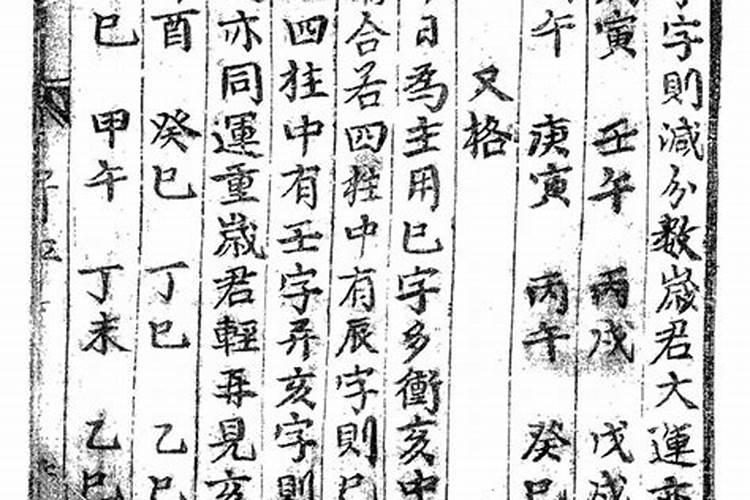 字則減分數歲君大運
寅 壬午 丙戌 戊戌
午 庚寅 丙午 癸巳
又格
日爲主用巳字多衝亥中
合若四柱中有辰字則巳
四柱中有壬字并亥字則
亦同運重歲君輕再見亥
酉 癸巳 丁巳 乙巳
巳 甲午 丁未 乙巳